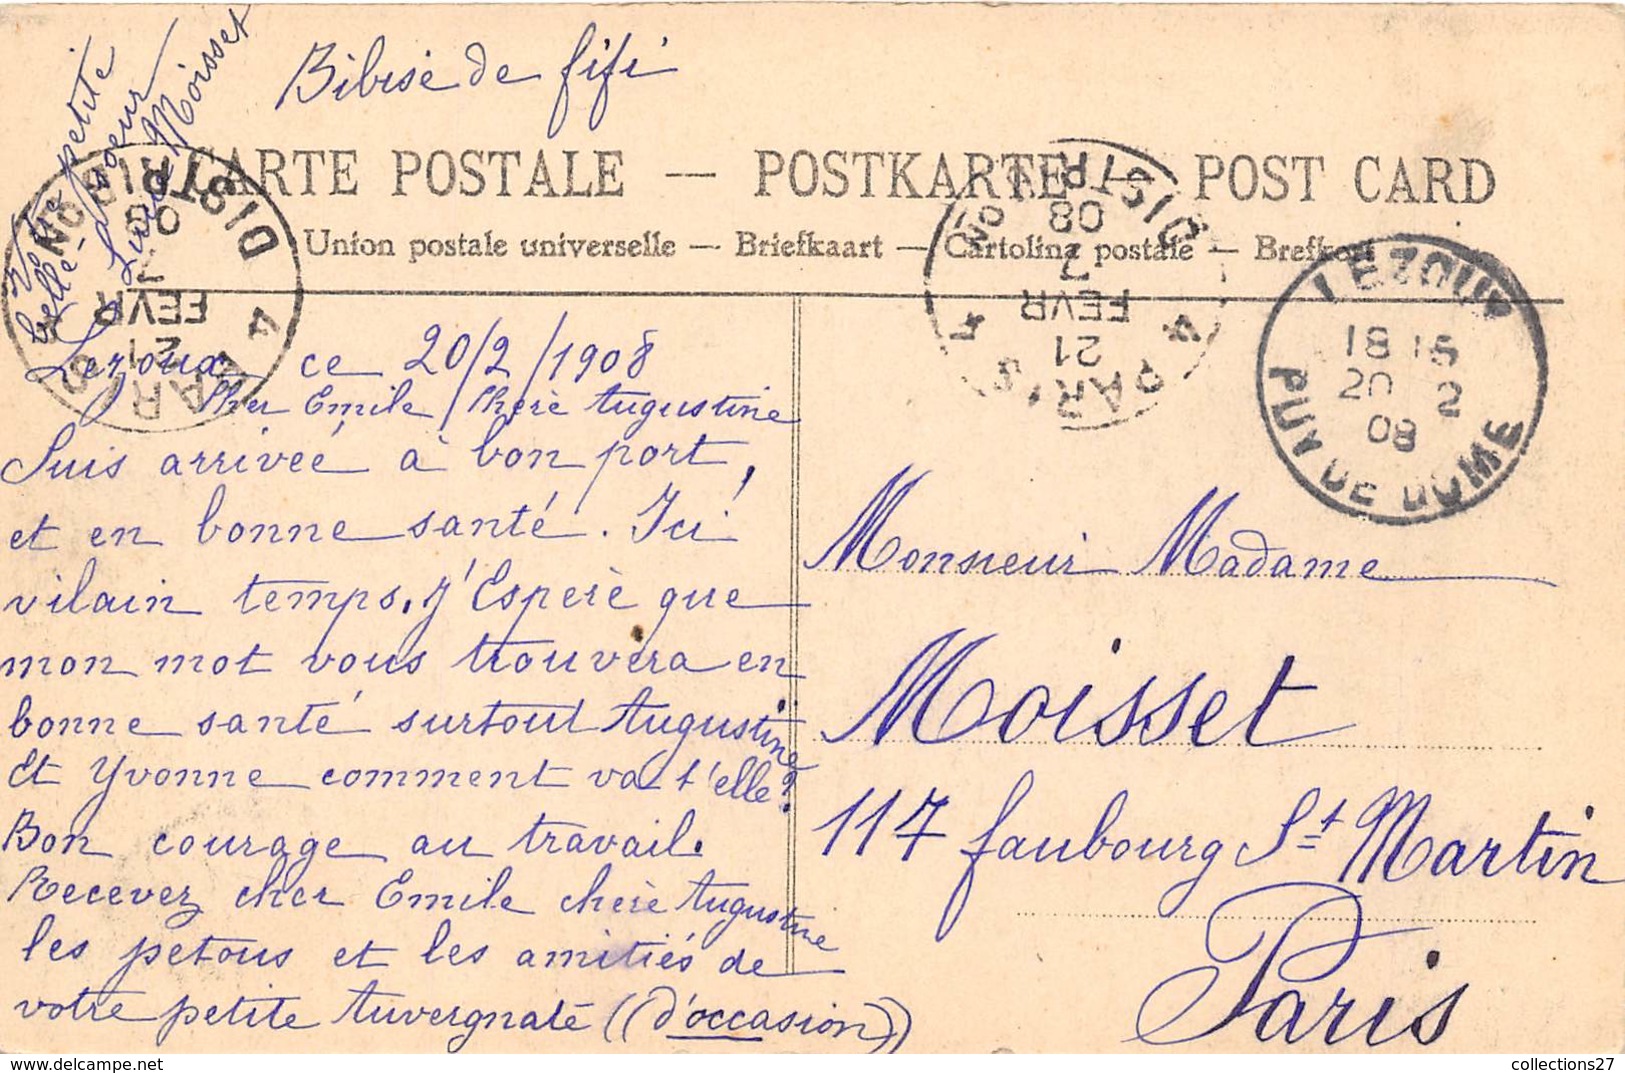 Bibise de fifi
Votre petite
belle-soeur
Lucie Moisset
CARTE POSTALE — POSTKARTE — POST CARD
Union postale universelle — Briefkaart — Cartolina postale — Brefkort
DISTRIBON
08
7
FEVR
21
4 PARIS 4
DISTRIBON
08
7
FEVR
21
4 PARIS 4
LEZOUX
18 15
20 2
08
PUY DE DOME
Lezoux ce 20/2/1908
Cher Emile / Cherè Augustine
Suis arrivée à bon port,
et en bonne santé. Ici
vilain temps. j'Esperè que
mon mot vous trouvera en
bonne santé surtout Augustine
Et Yvonne comment va t'elle?
Bon courage au travail.
Recevez cher Emile cherè Augustine
les petous et les amitiés de
votre petite Auvergnate ((d'occasion))
Monsieur Madame
Moisset
117 faubourg St Martin
Paris
collections27